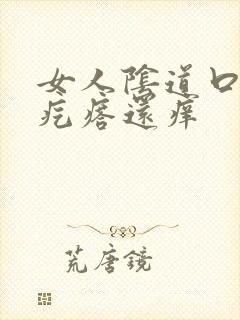 女人陰道口
疙瘩還痒
荒唐鏡